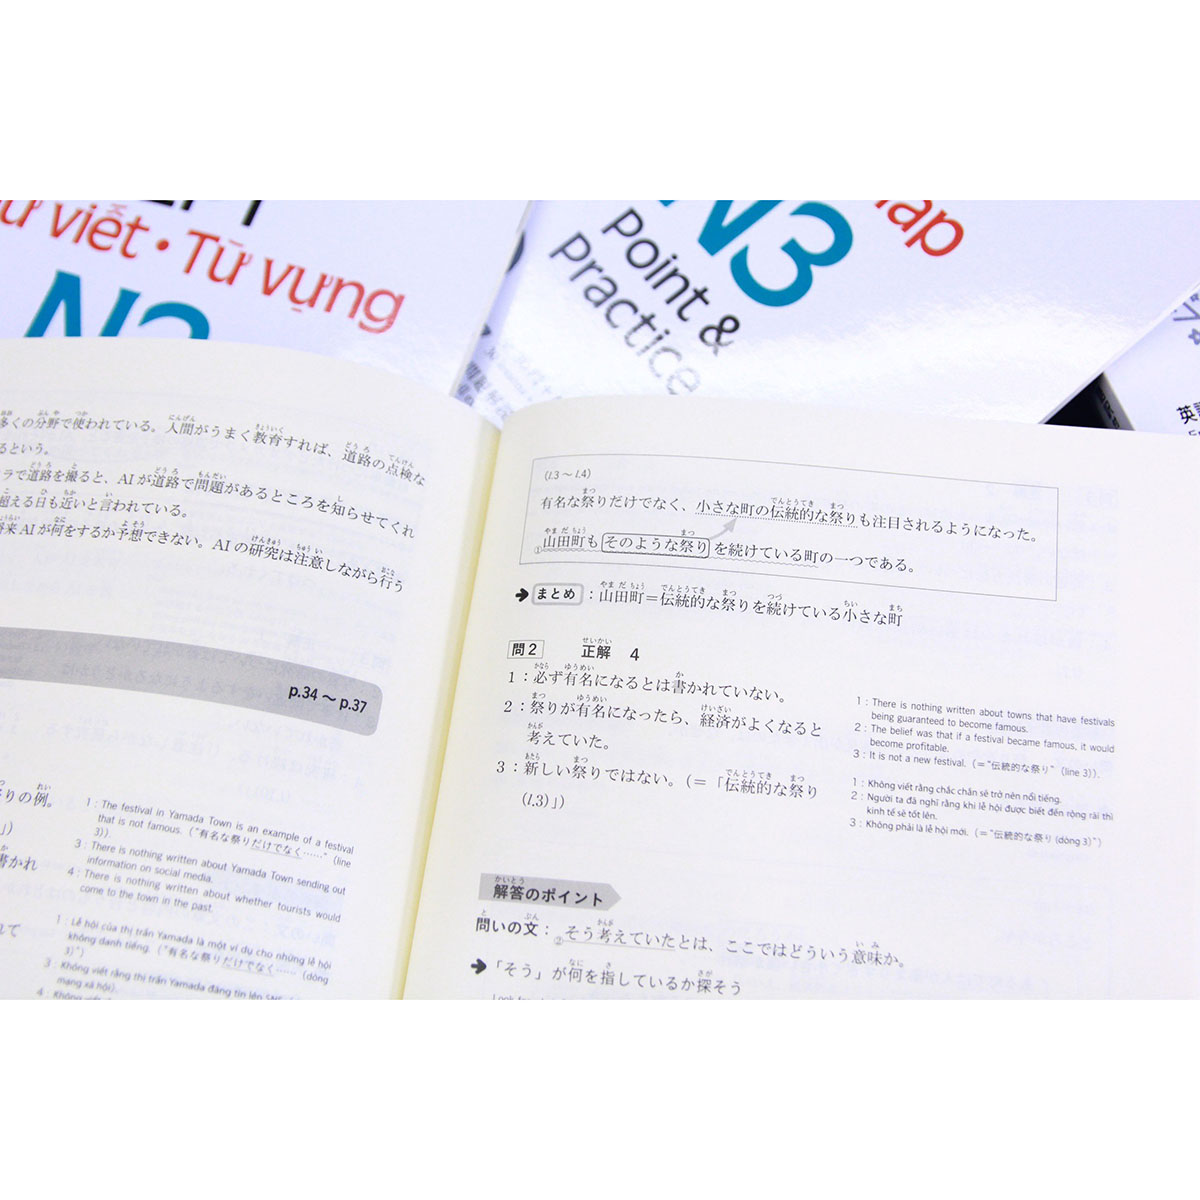 ừ viết・Từ vựng
N3
N3
Point &
Practice
英
多くの分野で使われている。人間がうまく教育すれば、道路の点検な
るという。
ラで道路を撮ると、AIが道路で問題があるところを知らせてくれ
超える日も近いと言われている。
将来AIが何をするか予想できない。AIの研究は注意しながら行う
p.34～p.37
祭りの例。
」)
書かれ
れて
1 : The festival in Yamada Town is an example of a festival
that is not famous. ("有名な祭りだけでなく……" (line
3)).
3 : There is nothing written about Yamada Town sending out
information on social media.
4 : There is nothing written about whether tourists would
come to the town in the past.
1 : Lễ hội của thị trấn Yamada là một ví dụ cho những lễ hội
không danh tiếng. ("有名な祭りだけでなく……(dòng
3)")
3 : Không viết rằng thị trấn Yamada đăng tin lên
mạng xã hội).
4 : Không
(l.3～l.4)
有名な祭りだけでなく、小さな町の伝統的な祭りも注目されるようになった。
①山田町も そのような祭り を続けている町の一つである。
➔ まとめ：山田町＝伝統的な祭りを続けている小さな町
問2 正解 4
1：必ず有名になるとは書かれていない。
2：祭りが有名になったら、経済がよくなると
考えていた。
3：新しい祭りではない。(＝「伝統的な祭り
(l.3)」)
1 : There is nothing written about towns that have festivals
being guaranteed to become famous.
2 : The belief was that if a festival became famous, it would
become profitable.
3 : It is not a new festival. (="伝統的な祭り" (line 3)).
1 : Không viết rằng chắc chắn sẽ trở nên nổi tiếng.
2 : Người ta đã nghĩ rằng khi lễ hội được biết đến rộng rãi thì
kinh tế sẽ tốt lên.
3 : Không phải là lễ hội mới. (="伝統的な祭り(dòng 3)")
解答のポイント
問いの文：②そう考えていたとは、ここではどういう意味か。
➔「そう」が何を指しているか探そう